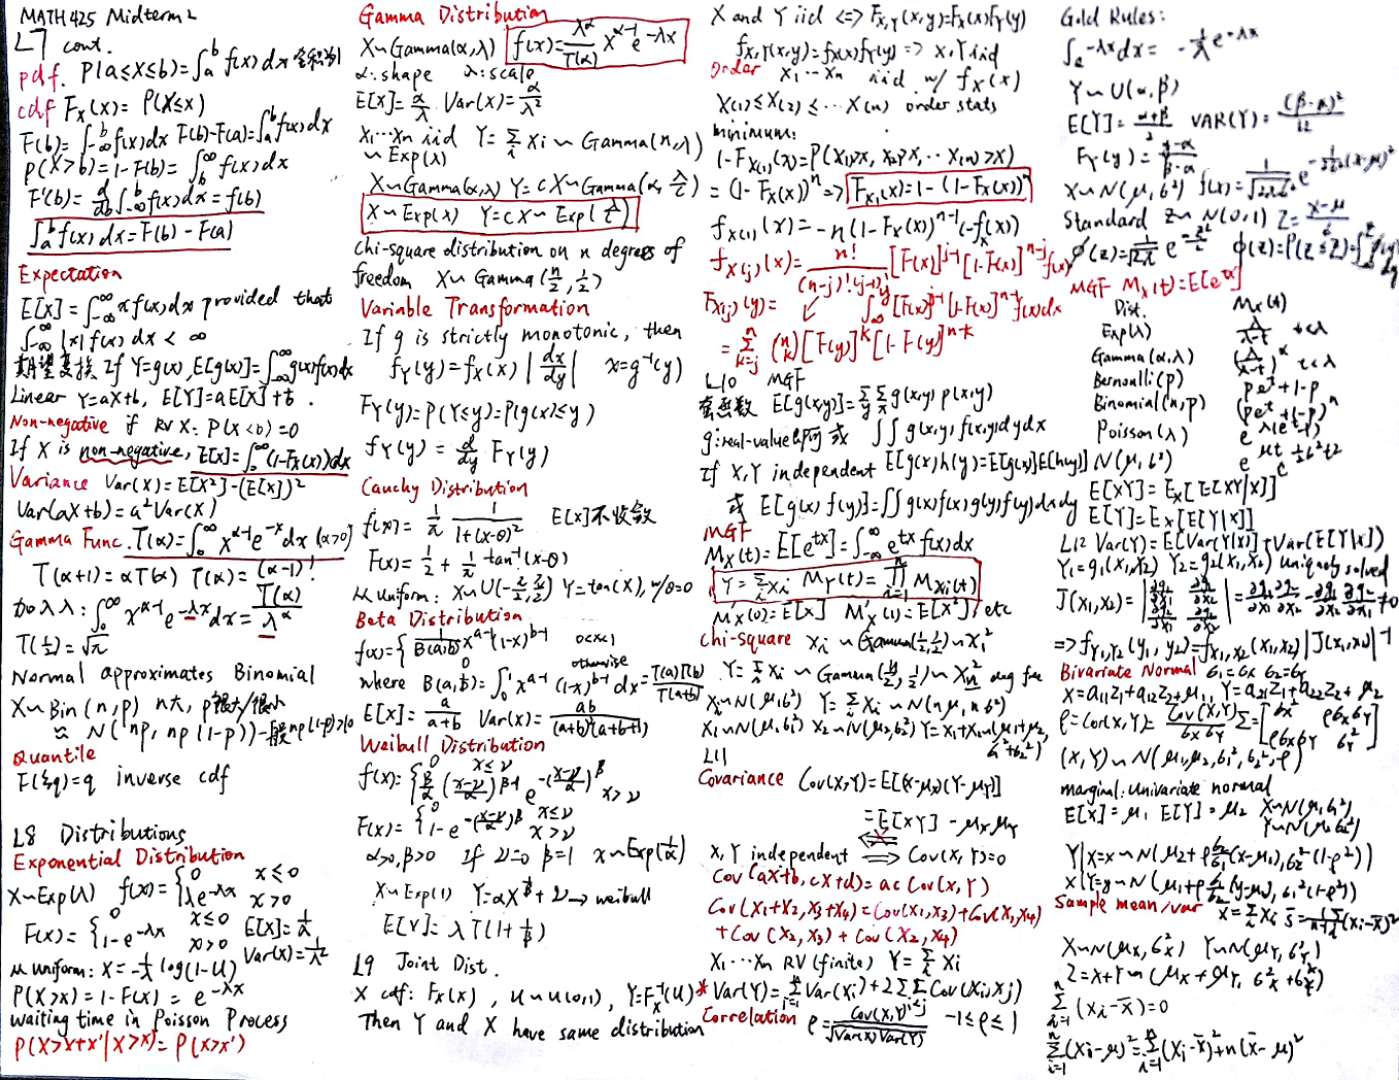 MATH 425 Midterm 2
L7 cont.
pdf. P(a≤X≤b)=∫_a^b f(x)dx
cdf F_X(x)= P(X≤x)
F(b)=∫_{-∞}^b f(x)dx F(b)-F(a)=∫_a^b f(x)dx
P(X>b)=1-F(b)=∫_b^∞ f(x)dx
F'(b)= d/db ∫_{-∞}^b f(x)dx = f(b)
∫_a^b f(x)dx = F(b) - F(a)
Expectation
E[X]=∫_{-∞}^∞ x f(x)dx provided that
∫_{-∞}^∞ |x| f(x) dx < ∞
期望变换 If Y=g(x), E[g(x)]=∫_{-∞}^∞ g(x)f(x)dx
Linear Y=aX+b, E[Y]=aE[X]+b.
Non-negative if RV X: P(X<0)=0
If X is non-negative, E[X]=∫_0^∞ (1-F_X(x))dx
Variance Var(X)=E[X²]-(E[X])²
Var(aX+b)=a²Var(X)
Gamma Func. Γ(α)=∫_0^∞ x^{α-1}e^{-x}dx (α>0)
Γ(α+1)=αΓ(α) Γ(α)=(α-1)!
加入λ: ∫_0^∞ x^{α-1}e^{-λx}dx = Γ(α)/λ^α
Γ(1/2)=√π
Normal approximates Binomial
X~Bin(n,p) n大, p很大/很小
≈ N(np, np(1-p)) 一般np(1-p)>10
Quantile
F(ξq)=q inverse cdf
L8 Distributions
Exponential Distribution
X~Exp(λ) f(x)={0 x≤0
λe^{-λx} x>0
F(x)={0 x≤0 E[X]=1/λ
1-e^{-λx} x>0 Var(X)=1/λ²
u uniform: X=-1/λ log(1-U)
P(X>x)=1-F(x)=e^{-λx}
waiting time in Poisson Process
P(X>x+x'|X>x)=P(X>x')
Gamma Distribution
X~Gamma(α,λ) f(x)=λ^α/Γ(α) x^{α-1}e^{-λx}
α:shape λ:scale
E[X]=α/λ Var(X)=α/λ²
X1...Xn iid Y=Σ_i Xi ~ Gamma(n,λ)
~ Exp(λ)
X~Gamma(α,λ) Y=cX~Gamma(α, λ/c)
X~Exp(λ) Y=cX~Exp(λ/c)
Chi-square distribution on n degrees of
freedom X~Gamma(n/2, 1/2)
Variable Transformation
If g is strictly monotonic, then
f_Y(y)=f_X(x)|dx/dy| x=g⁻¹(y)
F_Y(y)=P(Y≤y)=P(g(x)≤y)
f_Y(y)= d/dy F_Y(y)
Cauchy Distribution
f(x)= 1/π 1/(1+(x-θ)²) E[X]不收敛
F(x)=1/2 + 1/π tan⁻¹(x-θ)
u uniform: X~U(-π/2, π/2) Y=tan(X), w/θ=0
Beta Distribution
f(x)={1/B(a,b) x^{a-1}(1-x)^{b-1} 0<x<1
0 otherwise
where B(a,b)=∫_0^1 x^{a-1}(1-x)^{b-1}dx=Γ(a)Γ(b)/Γ(a+b)
E[X]=a/(a+b) Var(X)=ab/((a+b)²(a+b+1))
Weibull Distribution
f(x)={0 x≤ν
β/α ((x-ν)/α)^{β-1} e^{-((x-ν)/α)^β} x>ν
F(x)={0 x≤ν
1-e^{-((x-ν)/α)^β} x>ν
α>0, β>0 If ν=0 β=1 X~Exp(1/α)
X~Exp(1) Y=αX^{1/β}+ν → weibull
E[Y]=λΓ(1+1/β)
L9 Joint Dist.
X cdf: F_X(x), u~U(0,1), Y=F_X⁻¹(U)
Then Y and X have same distribution
X and Y iid <=> F_{X,Y}(x,y)=F_X(x)F_Y(y)
f_{X,Y}(x,y)=f_X(x)f_Y(y) => X,Y iid
Order X1...Xn iid w/ f_X(x)
X(1)≤X(2)≤...X(n) order stats
minimum:
1-F_{X(1)}(x)=P(X1>x, X2>x,...X(n)>x)
=(1-F_X(x))^n => F_{X(1)}(x)=1-(1-F_X(x))^n
f_{X(1)}(x)=-n(1-F_X(x))^{n-1}(-f_X(x))
f_{X(j)}(x)= n!/((n-j)!(j-1)!) [F(x)]^{j-1}[1-F(x)]^{n-j}f(x)
F_{X(j)}(y)= ∫_{-∞}^y [F(x)]^{j-1}[1-F(x)]^{n-j}f(x)dx
=Σ_{k=j}^n (n k)[F(y)]^k[1-F(y)]^{n-k}
L10 MGF
套函数 E[g(x,y)]=Σ_y Σ_x g(x,y)p(x,y)
g:real-value 或 ∫∫ g(x,y)f(x,y)dydx
If X,Y independent E[g(x)h(y)]=E[g(x)]E[h(y)]
或 E[g(x)f(y)]=∫∫g(x)f(x)g(y)f(y)dxdy
MGF
M_X(t)=E[e^{tx}]=∫_{-∞}^∞ e^{tx}f(x)dx
Y=Σ_i Xi M_Y(t)=Π_{i=1}^n M_{Xi}(t)
M'_X(0)=E[X] M''_X(0)=E[X²], etc
Chi-square Xi~Gamma(1/2,1/2)~X₁²
Y=Σ Xi ~ Gamma(n/2,1/2)~X_n² deg free
Xi~N(μ,σ²) Y=Σ_i Xi ~ N(nμ, nσ²)
X1~N(μ1,σ1²) X2~N(μ2,σ2²) Y=X1+X2~N(μ1+μ2,
σ1²+σ2²)
L11
Covariance Cov(X,Y)=E[(X-μx)(Y-μY)]
=E[XY]-μxμY
X,Y independent ⟹ Cov(X,Y)=0
Cov(aX+b,cX+d)=ac Cov(X,Y)
Cov(X1+X2,X3+X4)=Cov(X1,X3)+Cov(X1,X4)
+Cov(X2,X3)+Cov(X2,X4)
X1...Xn RV (finite) Y=Σ_i Xi
* Var(Y)=Σ_{i=1}^n Var(Xi)+2ΣΣ_{i<j} Cov(Xi,Xj)
Correlation ρ=Cov(X,Y)/√(Var(X)Var(Y)) -1≤ρ≤1
Gold Rules:
∫e^{-λx}dx= -1/λ e^{-λx}
Y~U(α,β)
E[Y]=(α+β)/2 VAR(Y)=(β-α)²/12
F_Y(y)=(y-α)/(β-α)
X~N(μ,σ²) f(x)=1/√(2πσ²) e^{-1/(2σ²)(x-μ)²}
Standard Z~N(0,1) Z=(X-μ)/σ
φ(z)=1/√(2π) e^{-z²/2} Φ(z)=P(Z≤z)=∫_{-∞}^z φ(y)dy
MGF M_X(t)=E[e^{tx}]
Dist. M_X(t)
Exp(λ) λ/(λ-t) t<λ
Gamma(α,λ) (λ/(λ-t))^α t<λ
Bernoulli(p) pe^t+1-p
Binomial(n,p) (pe^t+1-p)^n
Poisson(λ) e^{λ(e^t-1)}
N(μ,σ²) e^{μt+½σ²t²}
E[XY]=E_X[E[XY|X]]
E[Y]=E_X[E[Y|X]]
L12 Var(Y)=E[Var(Y|X)]+Var(E[Y|X])
Y1=g1(X1,X2) Y2=g2(X1,X2) uniquely solved
J(X1,X2)=|∂g1/∂x1 ∂g1/∂x2; ∂g2/∂x1 ∂g2/∂x2|=∂g1/∂x1 ∂g2/∂x2 - ∂g1/∂x2 ∂g2/∂x1≠0
=> f_{Y1,Y2}(y1,y2)=f_{X1,X2}(x1,x2)|J(x1,x2)|⁻¹
Bivariate Normal σ1=σx σ2=σY
X=a11Z1+a12Z2+μ1, Y=a21Z1+a22Z2+μ2
ρ=Cor(X,Y)=Cov(X,Y)/(σxσY) Σ=[σx² ρσxσY; ρσxσY σY²]
(X,Y)~N(μ1,μ2,σ1²,σ2²,ρ)
marginal: univariate normal
E[X]=μ1 E[Y]=μ2 X~N(μ1,σ1²)
Y~N(μ2,σ2²)
Y|X=x~N(μ2+ρσ2/σ1(x-μ1),σ2²(1-ρ²))
X|Y=y~N(μ1+ρσ1/σ2(y-μ2),σ1²(1-ρ²))
Sample mean/var
X~N(μx,σx²) Y~N(μY,σY²)
Z=X+Y~(μx+μY, σx²+σY²)
Σ_{i=1}^n (Xi-X̄)=0
Σ_{i=1}^n (Xi-μ)²=Σ_{i=1}^n (Xi-X̄)²+n(X̄-μ)²